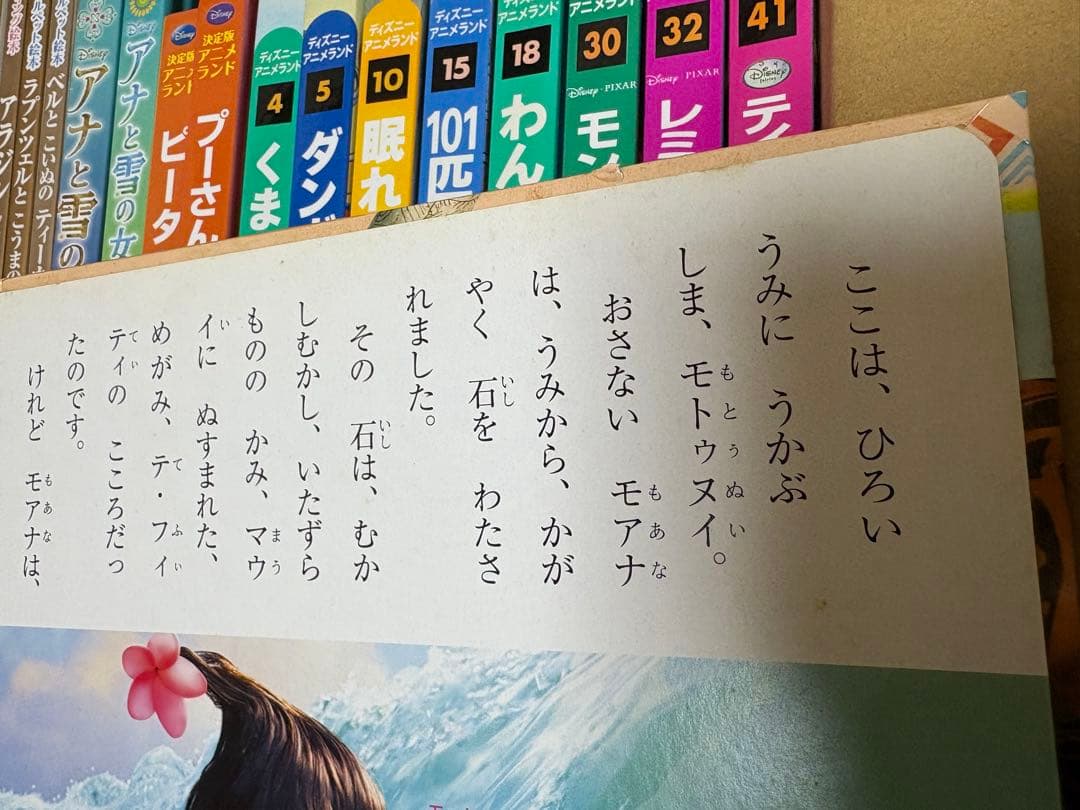 ック絵本
アラジン
ルベット絵本
ラプンツェルと こうまの
ベルベット絵本
ベルとこいぬの ティー
Disney
アナと雪の
アナと雪の女
Disney
決定版
アニメランド
ピータ
Disney
決定版
アニメランド
プーさん
ディズニー
アニメランド
4
くま
ディズニー
アニメランド
5
ダンボ
ディズニー
アニメランド
10
眠れ
ディズニー
アニメランド
15
101匹
ディズニー
アニメランド
18
わん
アニメランド
30
Disney・PIXAR
モン
32
Disney・PIXAR
レミ
41
Disney
ティ
ここは、ひろい
うみに うかぶ
しま、モトゥヌイ。
もとぅぬい
おさない モアナ
もあな
は、うみから、かが
やく 石を わたさ
いし
れました。
その 石は、むか
いし
しむかし、いたずら
ものの かみ、マウ
まう
イに ぬすまれた、
い
めがみ、テ・フィ
てふぃ
ティの こころだっ
てぃ
たのです。
けれど モアナは、
もあな